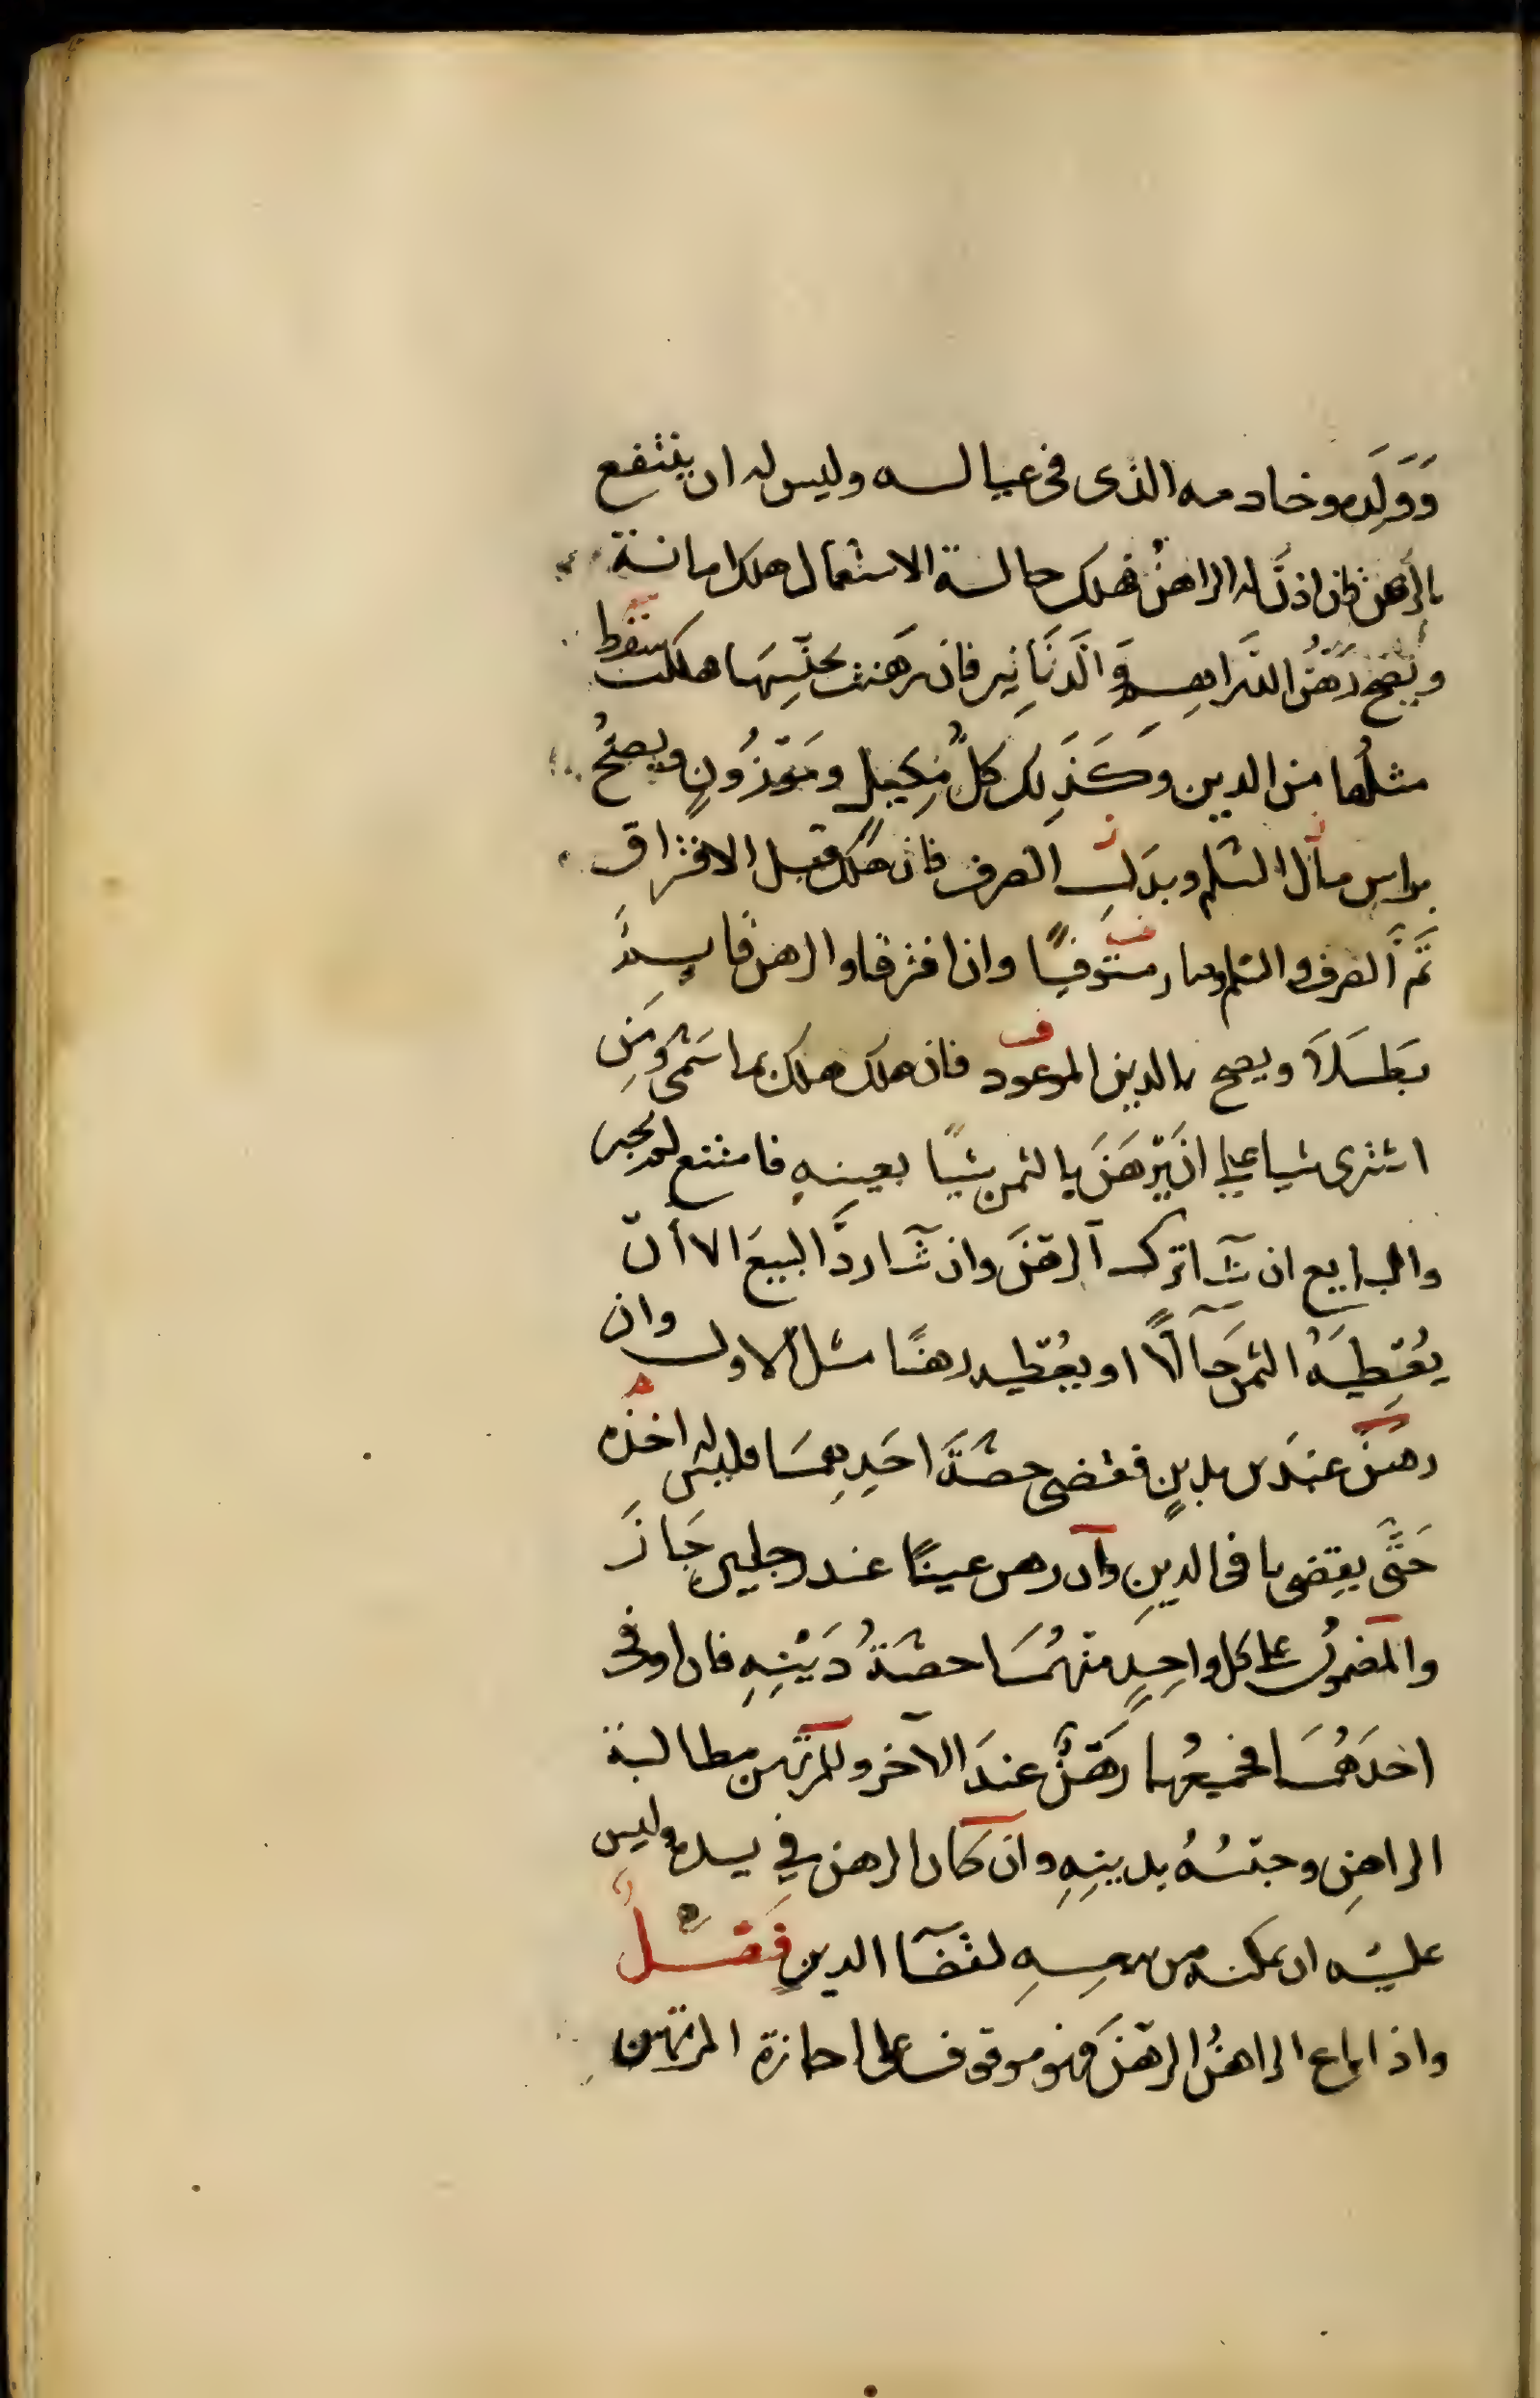 وَوَلَدِه وخادمه الذى فى عياله وليس له ان ينتفع
بالرهن فان اذن له الراهنُ فهلك حالة الاستعمال هلك امانة
ويصح رَهْنُ الدَّراهِم وَالدَّنَانِير فان رهنت بجنسِهَا هلكت سقط
مثلُها من الدين وَكَذَلِكَ كلُّ مَكِيلٍ ومَوْزُونٍ ويصحُّ
براسِ مال السّلم وبدَلِ الصرف فان هلك قبل الافتراق
تَمَّ الصرف والسّلم وصار مستوفيًا وان افترقا والرهن قايمٌ
بَطَلَا ويصح بالدين الموعود فان هلك هلك بما سَمَّى ومَنِ
اشترى شيا على ان يَرْهَنَ بالثمن شيًا بعينِهِ فامتنع لم يجبر
والبايع ان شآ ترك الرهْنَ وان شآ ردَّ البيعَ الا أن
يُعْطِيَهُ الثمن حَالًّا او يُعْطِيه رهنًا مثل الاول وان
رهن عبدَين بدينٍ فقضى حصَّةَ احَدِهِمَا فليس له اخذه
حَتَّى يقضى باقى الدينِ وان رهن عينًا عند رجلين جَازَ
والمضمون على كل واحِدٍ منهُمَا حصَّةُ دَيْنِهِ فان اوفى
احدَهُمَا فجميعُها رَهْنٌ عندَ الآخر وللمرتهن مطالبة
الراهنِ وحبْسُهُ بدينِهِ وان كان الرهن فى يده وليس
عليه ان يمكنه من بيعِهِ لقضآ الدين فَصْلٌ
واذا باع الراهنُ الرهْنَ فهو موقوف على اجازة المرتهن